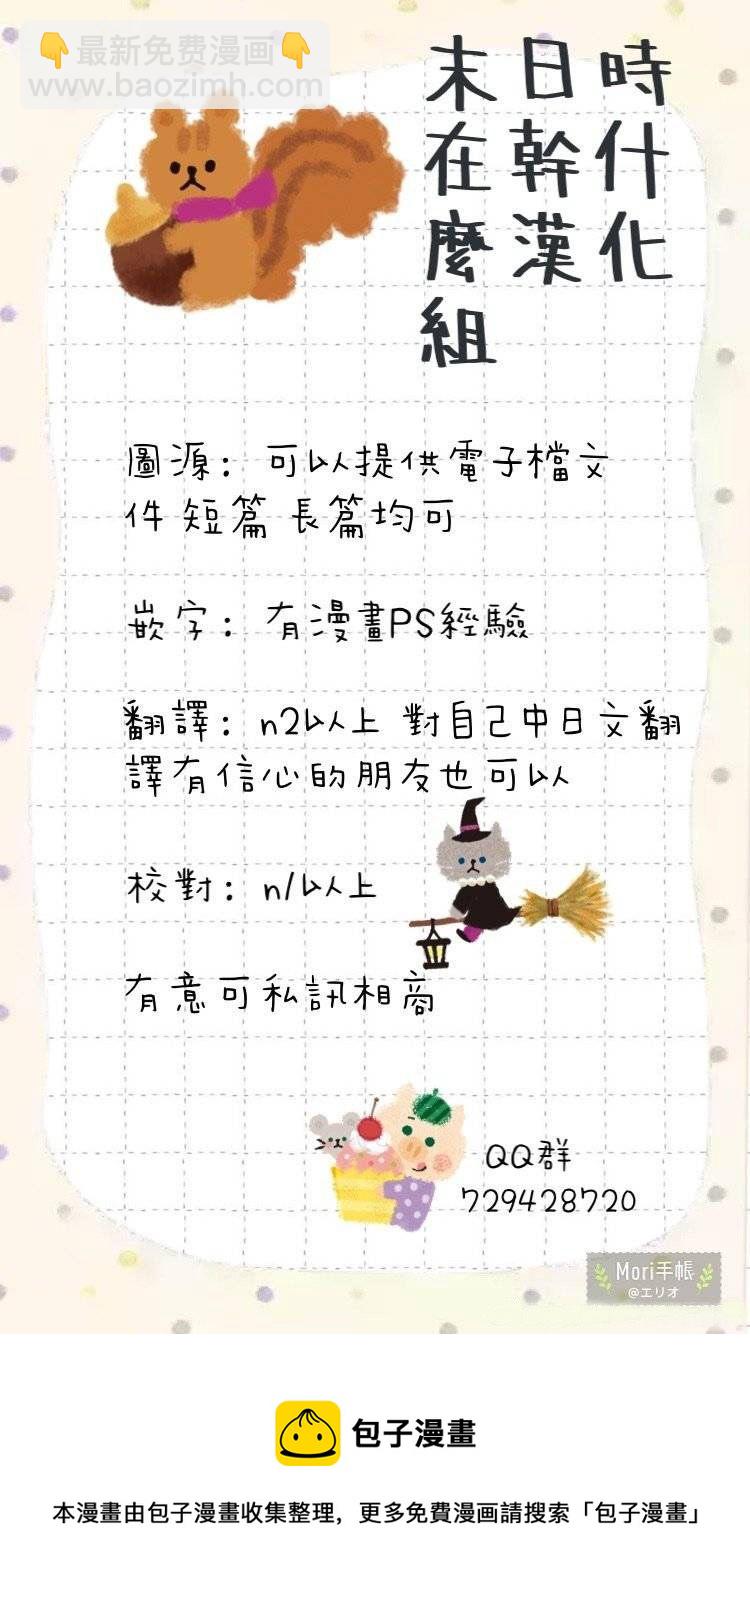 👇最新免费漫画👇
www.baozimh.com
末日時
在幹什
麼漢化
組
圖源：可以提供電子檔文
件 短篇 長篇均可
嵌字：有漫畫PS經驗
翻譯：n2以上 對自己中日文翻
譯有信心的朋友也可以
校對：n1以上
有意可私訊相商
QQ群
729428720
Mori手帳
@エリオ
包子漫畫
本漫畫由包子漫畫收集整理，更多免費漫画請搜索「包子漫畫」